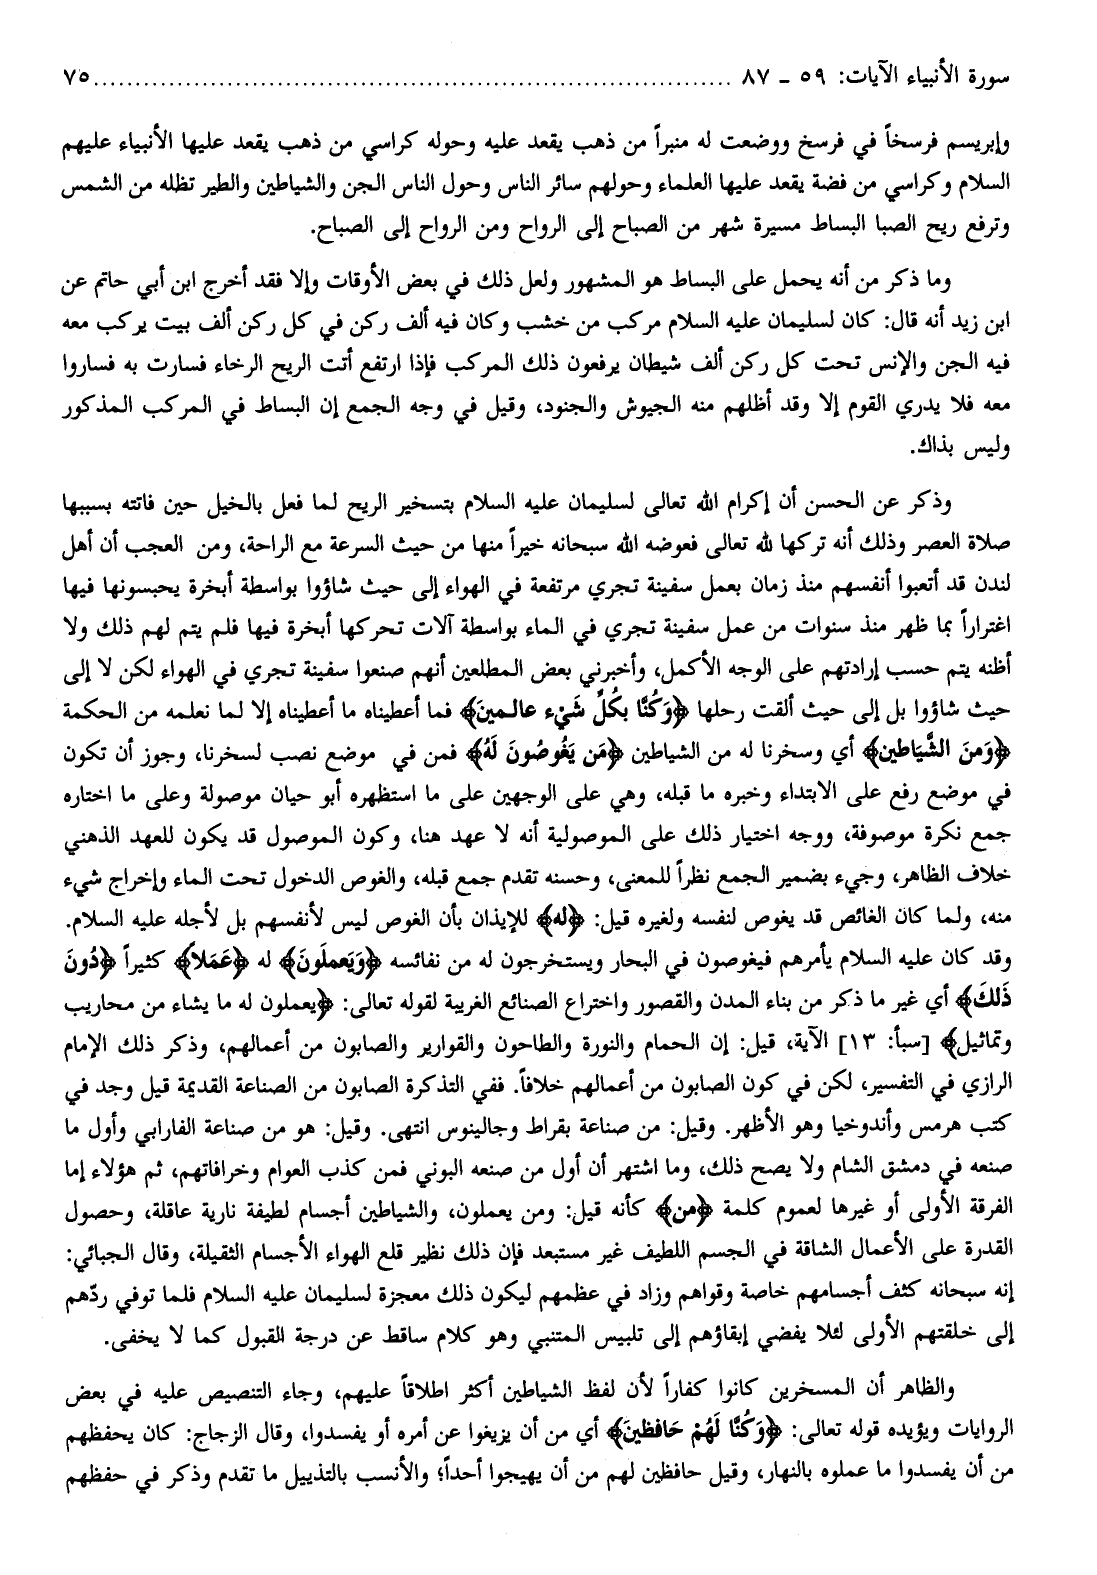 سورة الأنبياء الآيات: ٥٩ ـ ٨٧ .......................................................................... ٧٥
وإبريسم فرسخاً في فرسخ ووضعت له منبراً من ذهب يقعد عليه وحوله كراسي من ذهب يقعد عليها الأنبياء عليهم
السلام وكراسي من فضة يقعد عليها العلماء وحولهم سائر الناس وحول الناس الجن والشياطين والطير تظله من الشمس
وترفع ريح الصبا البساط مسيرة شهر من الصباح إلى الرواح ومن الرواح إلى الصباح.
وما ذكر من أنه يحمل على البساط هو المشهور ولعل ذلك في بعض الأوقات وإلا فقد أخرج ابن أبي حاتم عن
ابن زيد أنه قال: كان لسليمان عليه السلام مركب من خشب وكان فيه ألف ركن في كل ركن ألف بيت يركب معه
فيه الجن والإنس تحت كل ركن ألف شيطان يرفعون ذلك المركب فإذا ارتفع أتت الريح الرخاء فسارت به فساروا
معه فلا يدري القوم إلا وقد أظلهم منه الجيوش والجنود، وقيل في وجه الجمع إن البساط في المركب المذكور
وليس بذاك.
وذكر عن الحسن أن إكرام الله تعالى لسليمان عليه السلام بتسخير الريح لما فعل بالخيل حين فاتته بسببها
صلاة العصر وذلك أنه تركها لله تعالى فعوضه الله سبحانه خيراً منها من حيث السرعة مع الراحة، ومن العجب أن أهل
لندن قد أتعبوا أنفسهم منذ زمان بعمل سفينة تجري مرتفعة في الهواء إلى حيث شاؤوا بواسطة أبخرة يحبسونها فيها
اغتراراً بما ظهر منذ سنوات من عمل سفينة تجري في الماء بواسطة آلات تحركها أبخرة فيها فلم يتم لهم ذلك ولا
أظنه يتم حسب إرادتهم على الوجه الأكمل، وأخبرني بعض المطلعين أنهم صنعوا سفينة تجري في الهواء لكن لا إلى
حيث شاؤوا بل إلى حيث ألقت رحلها ﴿وَكُنَّا بكُلِّ شَيْء عالـمينَ﴾ فما أعطيناه ما أعطيناه إلا لما نعلمه من الحكمة
﴿وَمنَ الشَّيَاطين﴾ أي وسخرنا له من الشياطين ﴿مَن يَغُوصُونَ لَهُ﴾ فمن في موضع نصب لسخرنا، وجوز أن تكون
في موضع رفع على الابتداء وخبره ما قبله، وهي على الوجهين على ما استظهره أبو حيان موصولة وعلى ما اختاره
جمع نكرة موصوفة، ووجه اختيار ذلك على الموصولية أنه لا عهد هنا، وكون الموصول قد يكون للعهد الذهني
خلاف الظاهر، وجيء بضمير الجمع نظراً للمعنى، وحسنه تقدم جمع قبله، والغوص الدخول تحت الماء وإخراج شيء
منه، ولما كان الغائص قد يغوص لنفسه ولغيره قيل: ﴿له﴾ للإيذان بأن الغوص ليس لأنفسهم بل لأجله عليه السلام.
وقد كان عليه السلام يأمرهم فيغوصون في البحار ويستخرجون له من نفائسه ﴿وَيَعملُونَ﴾ له ﴿عَمَلاً﴾ كثيراً ﴿دُونَ
ذَلكَ﴾ أي غير ما ذكر من بناء المدن والقصور واختراع الصنائع الغريبة لقوله تعالى: ﴿يعملون له ما يشاء من محاريب
وتماثيل﴾ [سبأ: ١٣] الآية، قيل: إن الحمام والنورة والطاحون والقوارير والصابون من أعمالهم، وذكر ذلك الإمام
الرازي في التفسير، لكن في كون الصابون من أعمالهم خلافاً. ففي التذكرة الصابون من الصناعة القديمة قيل وجد في
كتب هرمس وأندوخيا وهو الأظهر. وقيل: من صناعة بقراط وجالينوس انتهى. وقيل: هو من صناعة الفارابي وأول ما
صنعه في دمشق الشام ولا يصح ذلك، وما اشتهر أن أول من صنعه البوني فمن كذب العوام وخرافاتهم، ثم هؤلاء إما
الفرقة الأولى أو غيرها لعموم كلمة ﴿من﴾ كأنه قيل: ومن يعملون، والشياطين أجسام لطيفة نارية عاقلة، وحصول
القدرة على الأعمال الشاقة في الجسم اللطيف غير مستبعد فإن ذلك نظير قلع الهواء الأجسام الثقيلة، وقال الجبائي:
إنه سبحانه كثف أجسامهم خاصة وقواهم وزاد في عظمهم ليكون ذلك معجزة لسليمان عليه السلام فلما توفي ردّهم
إلى خلقتهم الأولى لئلا يفضي إبقاؤهم إلى تلبيس المتنبي وهو كلام ساقط عن درجة القبول كما لا يخفى.
والظاهر أن المسخرين كانوا كفاراً لأن لفظ الشياطين أكثر اطلاقاً عليهم، وجاء التنصيص عليه في بعض
الروايات ويؤيده قوله تعالى: ﴿وَكُنَّا لَهُمْ حَافظينَ﴾ أي من أن يزيغوا عن أمره أو يفسدوا، وقال الزجاج: كان يحفظهم
من أن يفسدوا ما عملوه بالنهار، وقيل حافظين لهم من أن يهيجوا أحداً؛ والأنسب بالتذييل ما تقدم وذكر في حفظهم